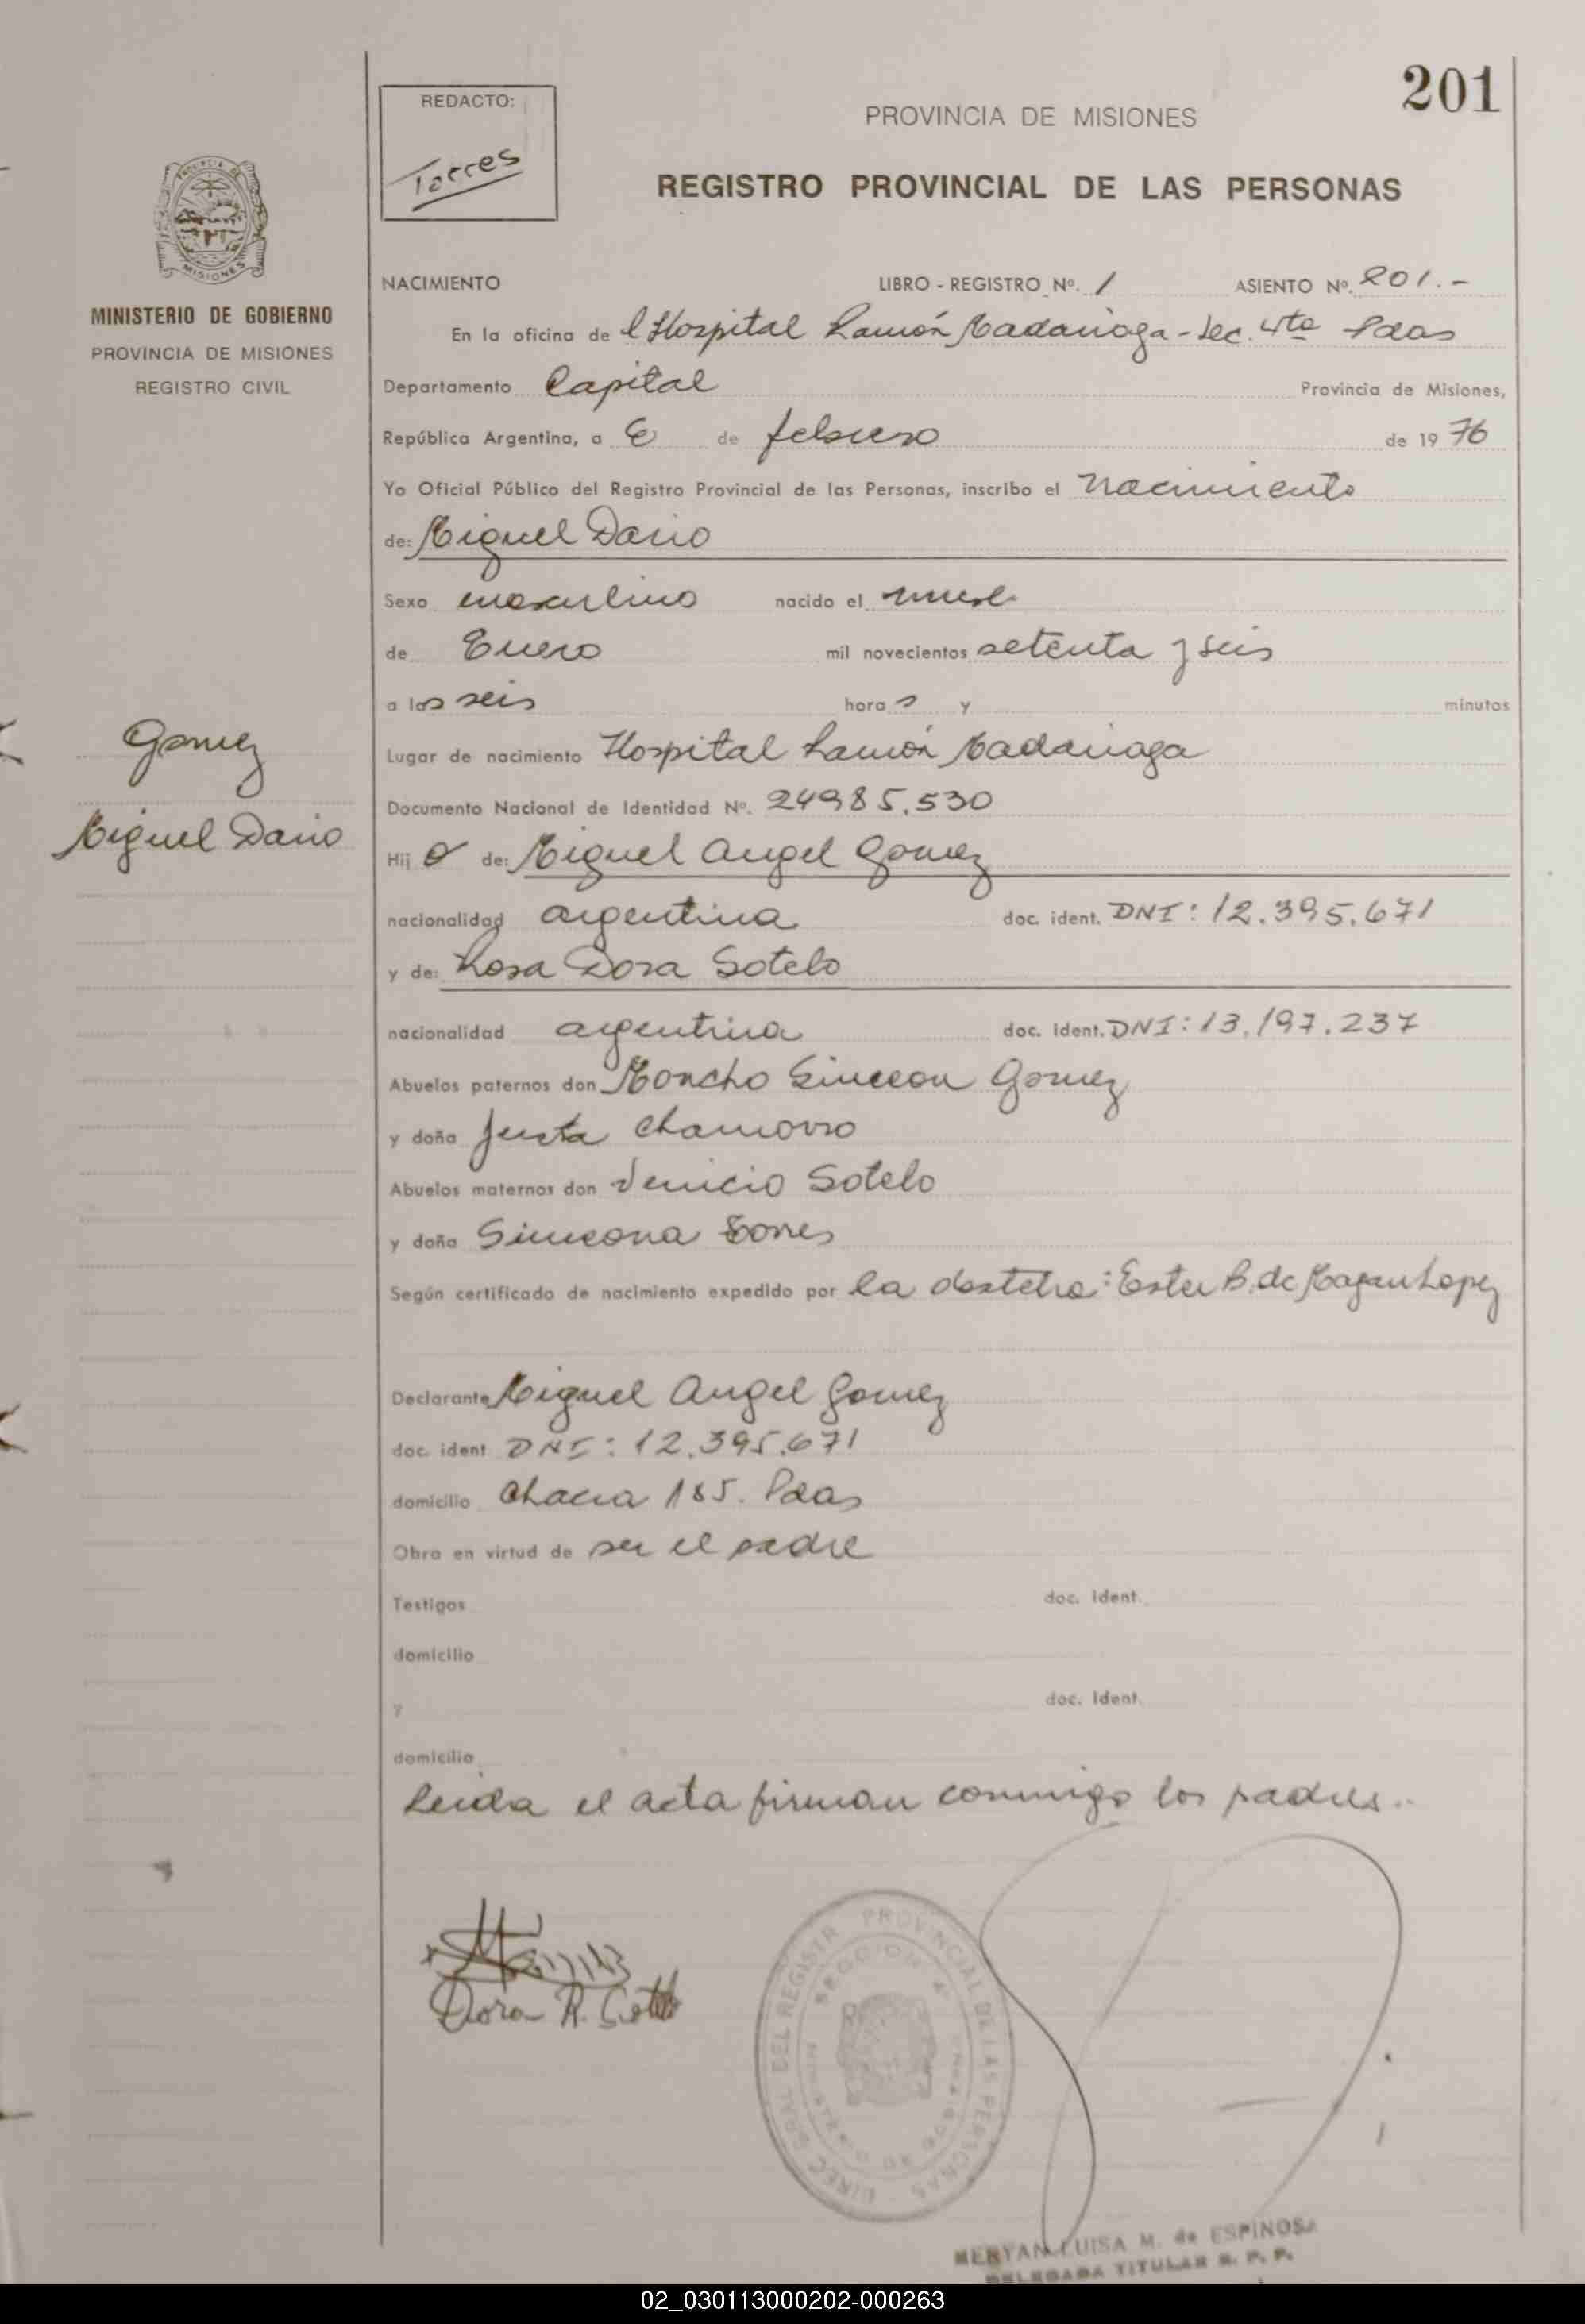 201
REDACTO:
Torres
PROVINCIA DE MISIONES
REGISTRO PROVINCIAL DE LAS PERSONAS
MISIONES
MINISTERIO DE GOBIERNO
PROVINCIA DE MISIONES
REGISTRO CIVIL
NACIMIENTO LIBRO - REGISTRO Nº. 1 ASIENTO Nº. 201.-
En la oficina de l Hospital Ramón Madariaga - Sec. 4ta Pdas
Departamento Capital Provincia de Misiones,
República Argentina, a 6 de febrero de 19 76
Yo Oficial Público del Registro Provincial de las Personas, inscribo el nacimiento
de: Miguel Dario
Sexo masculino nacido el nueve
de Enero mil novecientos setenta y seis
a las seis hora s y minutos
Gomez
Miguel Dario
Lugar de nacimiento Hospital Ramón Madariaga
Documento Nacional de Identidad Nº. 24985.530
Hij o de: Miguel Angel Gomez
nacionalidad argentina doc. ident. DNI: 12.395.671
y de: Rosa Dora Sotelo
nacionalidad argentina doc. ident. DNI: 13.197.237
Abuelos paternos don Moncho Simeon Gomez
y doña Justa Chamorro
Abuelos maternos don Sotelo
y doña Simeona Torres
Según certificado de nacimiento expedido por la obstetra: Ester B. de Lopez
Declarante Miguel Angel Gomez
doc. ident. DNI: 12.395.671
domicilio Chacra 185. Pdas
Obra en virtud de ser el padre
Testigos doc. ident.
domicilio
y doc. ident.
domicilio
Leida el acta firman conmigo los padres..
Dora R. Sotelo
DIREC. GRAL DEL REGISTR. PROVINCIAL DE LAS PERSONAS
SECCION 4ª
LUISA M. de ESPINOSA
DELEGADA TITULAR R. P. P.
02_030113000202-000263